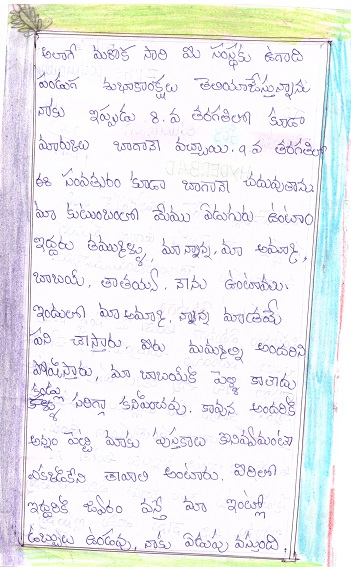 అలాగే మరొక సారి మీ సంస్థకు ఉగాది
పండుగ శుభాకాంక్షలు తెలియాజేస్తున్నాను
నాకు ఇప్పుడు 8. వ తరగతిలో కూడా
మారుకులు బాగానే వచ్చాయి. 9 వ తరగతిలో
ఈ సంవతురం కూడా బాగానే చదువుతాను
మా కుటుంబంలో మేము ఏడుగురు ఉంటాం
ఇద్దరు తమ్ముళ్ళు, మా నాన్న, మా అమ్మా,
బాబాయ్, తాతయ్య, నాను ఉంటాము.
ఇందులో మా అమ్మా, నాన్న మాత్రమే
పని చాస్తారు. వీరు మమ్మల్ని అందరిని
పోషిస్తారు, మా బాబాయికి పెళ్ళి కాలాదు
కండ్లు సరిగ్గా కనిపించవు. కావున అందరికి
అన్నం పెట్టి మాకు పుస్తకాలు కొనివ్వమంటా
ఎకడికేని తావాలి అంటారు. వీరిలో
ఇద్దరికి జ్వరం వస్తే మా ఇంట్లో
డబ్బులు ఉండవు, నాకు ఏడుపు వస్తుంది.